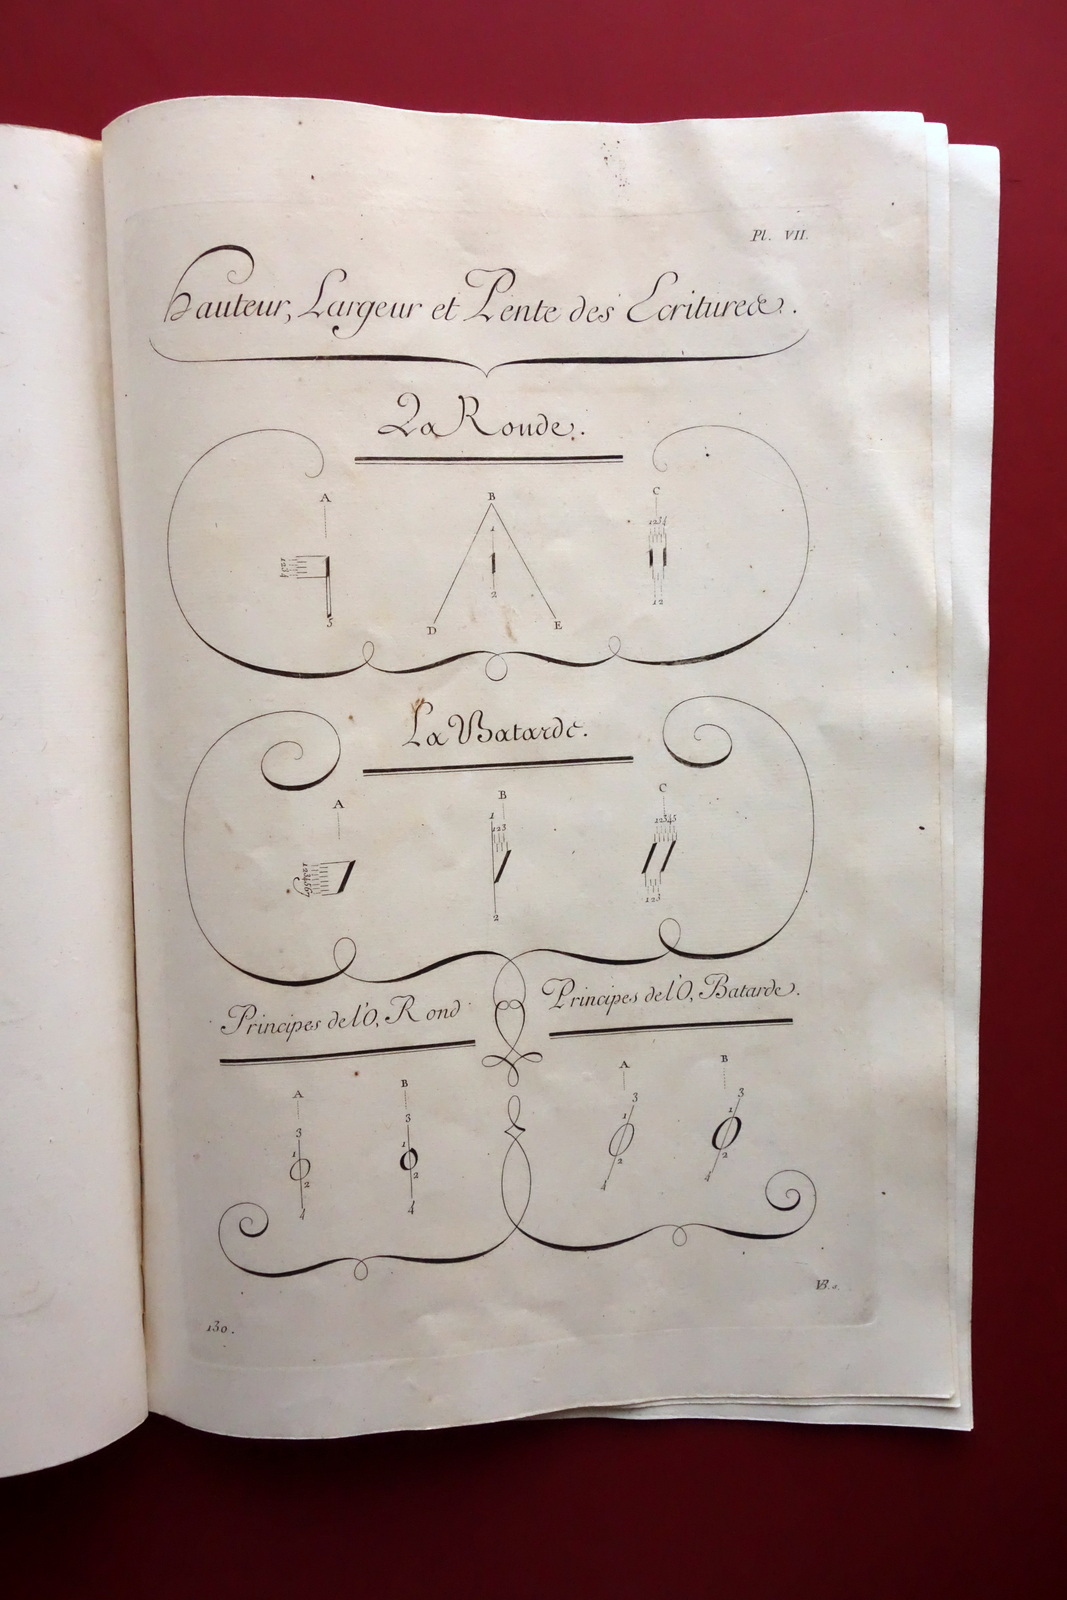 Pl. VII.
Hauteur, Largeur et Pente des Ecritures.
La Ronde.
A B C
1234
1
1234
5
2
12
D E
La Batarde.
A B C
1
123
12345
1234567
123
2
Principes de l'O, Rond
Principes de l'O, Batarde.
A B A B
3 3 3 3
1 1 1 1
2 2 2 2
4 4 4 4
130.